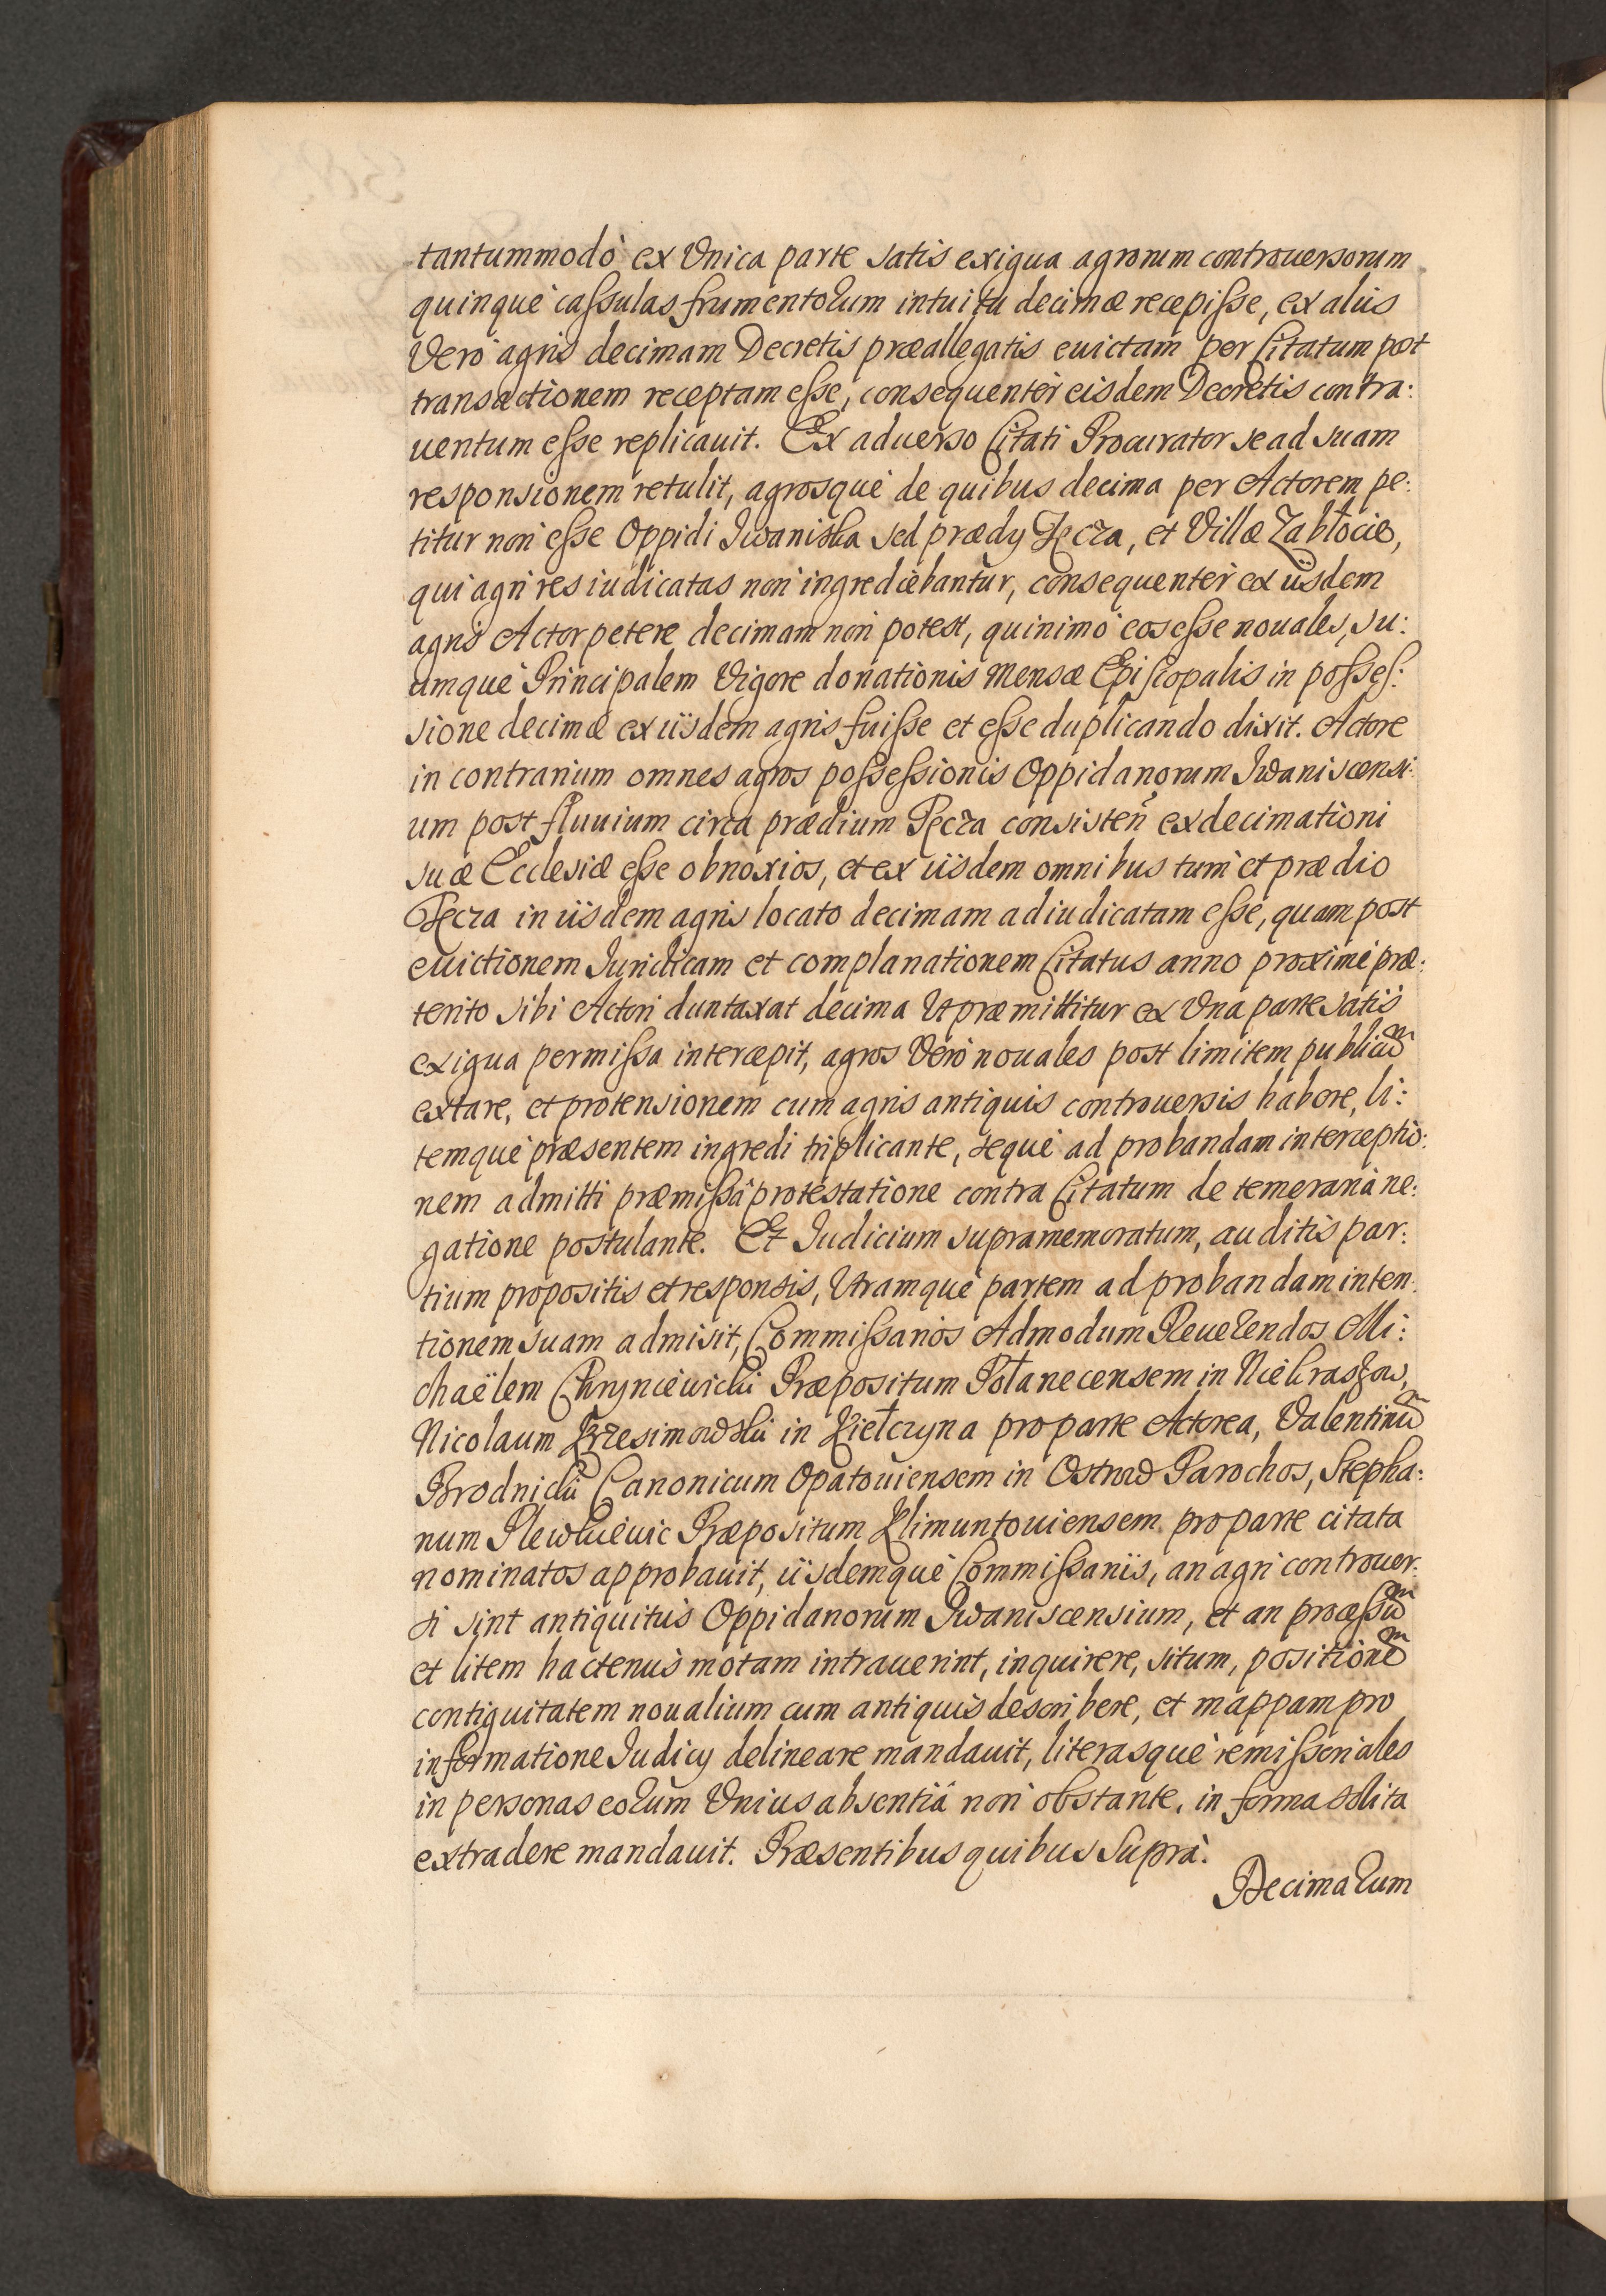 tantummodò ex Vnica parte satis exigua agrorum controuersorum
quinquè cassulas frumentorum intuitu decimæ recepisse, ex alüs
Verò agris decimam Decretis præallegatis euictam per Citatum post
transactionem receptam esse, consequentèr eisdem Decretis contra:
uentum esse replicauit. Ex aduerso Citati Procurator se ad suam
responsionem retulit, agrosquè de quibus decima per Actorem pe:
titur non esse Oppidi Iwaniska sed prædÿ Pecza, et Villæ Zabłocie,
qui agri res iudicatas non ingrediebantur, consequentèr ex üsdem
agris Actor petere decimam non potest, quinimò eos esse nouales, su:
umquè Principalem Vigore donationis Mensæ Episcopalis in posses:
sione decimæ ex üsdem agris fuisse et esse duplicando dixit. Actore
in contrarium omnes agros possessionis Oppidanorum Iwaniscensi:
um post fluuium circa prædium Pecza consisteñ exdecimationi
suæ Ecclesiæ esse obnoxios, et ex üsdem omnibus tum et prædio
Pecza in üsdem agris locato decimam adiudicatam esse, quam post
euictionem Iuridicam et complanationem Citatus anno proximè præ:
terito sibi Actori duntaxat decima Vt præmittitur ex Vna parte satis
exigua permissa intercepit, agros Verò nouales post limitem publicum
extare, et protensionem cum agris antiquis controuersis habere, li:
temquè præsentem ingredi triplicante, sequè ad probandam interceptio:
nem admitti præmissâ protestatione contra Citatum de temerariâ ne:
gatione postulante. Et Iudicium supramemoratum, auditis par:
tium propositis et responsis, Vtramquè partem ad probandam inten:
tionem suam admisit, Commissarios Admodum Reuerendos Mi:
chaëlem Chryncieuicki Præpositum Połanecensem in Niekraszow,
Nicolaum Krzesimowski in Kiełczyna pro parte Actorea, Valentinum
Brodnicki Canonicum Opatouiensem in Ostrow Parochos, Stepha:
num Plewkieuic Præpositum Klimuntouiensem pro parte citata
nominatos approbauit, üsdemquè Commissarïïs, an agri controuer:
si sint antiquitùs Oppidanorum Iwaniscensium, et an processum
et litem hactenùs motam intrauerint, inquirere, situm, positionem
contiguitatem noualium cum antiquis describere, et mappam pro
informatione Iudicÿ delineare mandauit, literasquè remissoriales
in personas eorum Vnius absentiâ non obstante, in forma solita
extradere mandauit. Præsentibus quibus Suprà.
Decimarum